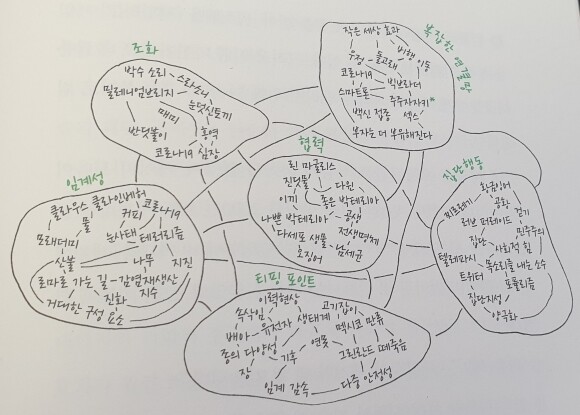 조화
박수 소리
스라소니
밀레니엄브리지
눈덧신토끼
매미
반딧불이
홍역
코로나19
심장
복잡한 연결망
작은 세상 효과
우정
돌고래
비행 이동
코로나19
빅브라더
스마트폰
주우자자키
백신 접종
섹스
부자는 더 부유해진다
협력
린 마굴리스
진딧물
다윈
이끼
좋은 박테리아
나쁜 박테리아
공생
다세포 생물
전생명체
남세균
오징어
임계성
클라우스 클라인네허
코로나19
커피
물
모래더미
눈사태
테러리즘
산불
나무
지진
로마로 가는 길
감염재생산
지수
진화
거대한 구성 요소
티핑 포인트
이력현상
속삭임
고기잡이
생태계
배아
유전자
멕시코 만류
종의 다양성
연못
기후
그린란드
떼죽음
장
임계 감속
다중 안정성
집단행동
황금잉어
찌르레기
공황
걷기
러브 퍼레이드
집단
민주주의
텔레파시
사회적 힘
목소리를 내는 소수
트위터
포퓰리즘
집단지성
양극화